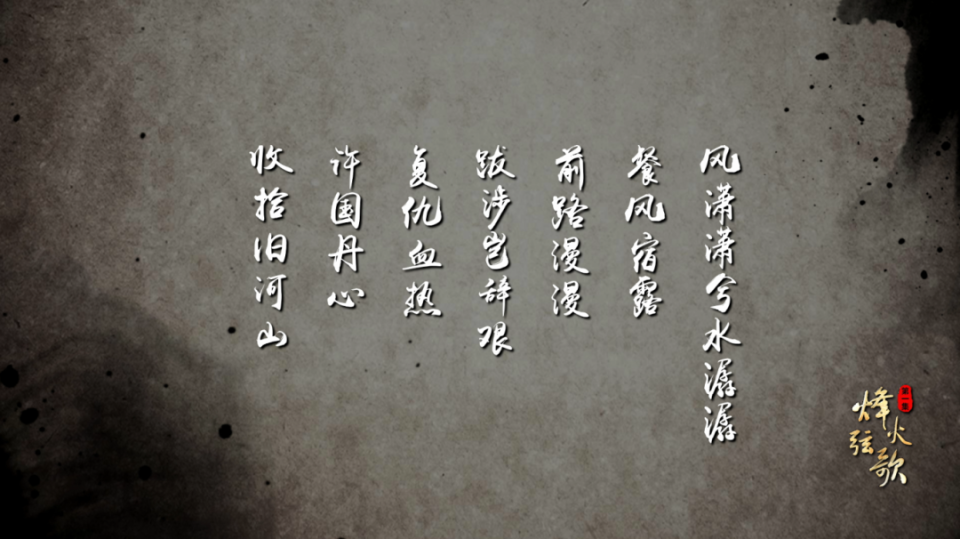 风潇潇兮水潺潺
餐风宿露
前路漫漫
跋涉岂辞艰
复仇血热
许国丹心
收拾旧河山
烽火
弦歌
第一集